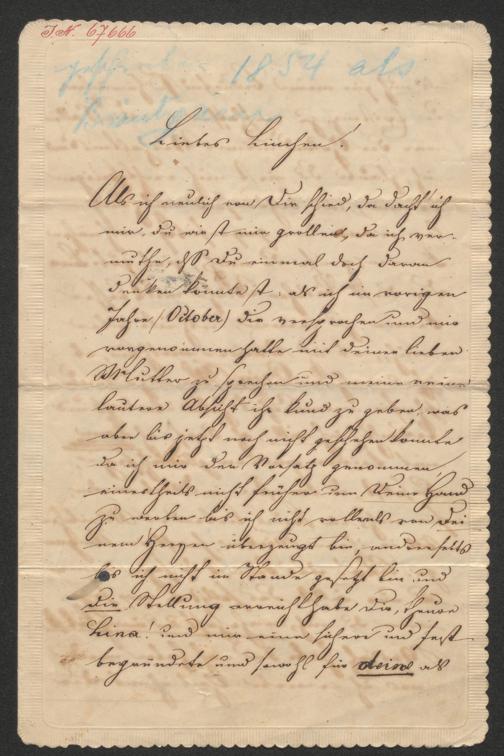 J.N. 67666
geschrieben 1854 als
Bräutigam
Liebes Linchen!
Als ich neulich von Dir schied, da dacht' ich
mir, du wirst mir grollen, da ich ver-
muthe, daß Du einmal doch daran
denken könntest, als ich im vorigen
Jahre (October) dir versprochen und mir
vorgenommen hatte mit deiner lieben
Mutter zu sprechen und meine reine
lautere Absicht ihr kund zu geben, was
aber bis jetzt noch nicht geschehen konnte
da ich mir den Vorsatz genommen
einestheils nicht früher um Deine Hand
zu werben bis ich nicht vollends von Dei
nem Herzen überzeugt bin, anderseits
bis ich nicht im Stande gesetzt bin und
die Stellung erreicht habe Dir, theure
Lina! und mir eine sichere und fest
begründete und sowohl für deine als